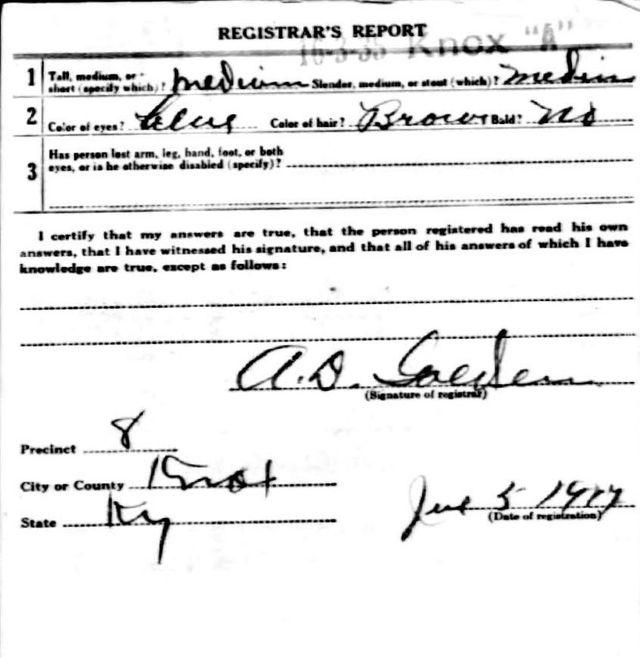 REGISTRAR'S REPORT
16-3-35 Knox "A"
1 Tall, medium, or short (specify which)? medium Slender, medium, or stout (which)? medium
2 Color of eyes? blue Color of hair? Brown Bald? No
3 Has person lost arm, leg, hand, foot, or both eyes, or is he otherwise disabled (specify)?
I certify that my answers are true, that the person registered has read his own
answers, that I have witnessed his signature, and that all of his answers of which I have
knowledge are true, except as follows:
A. D. Golden
(Signature of registrar)
Precinct 8
City or County Knox
State Ky
June 5 1917
(Date of registration)